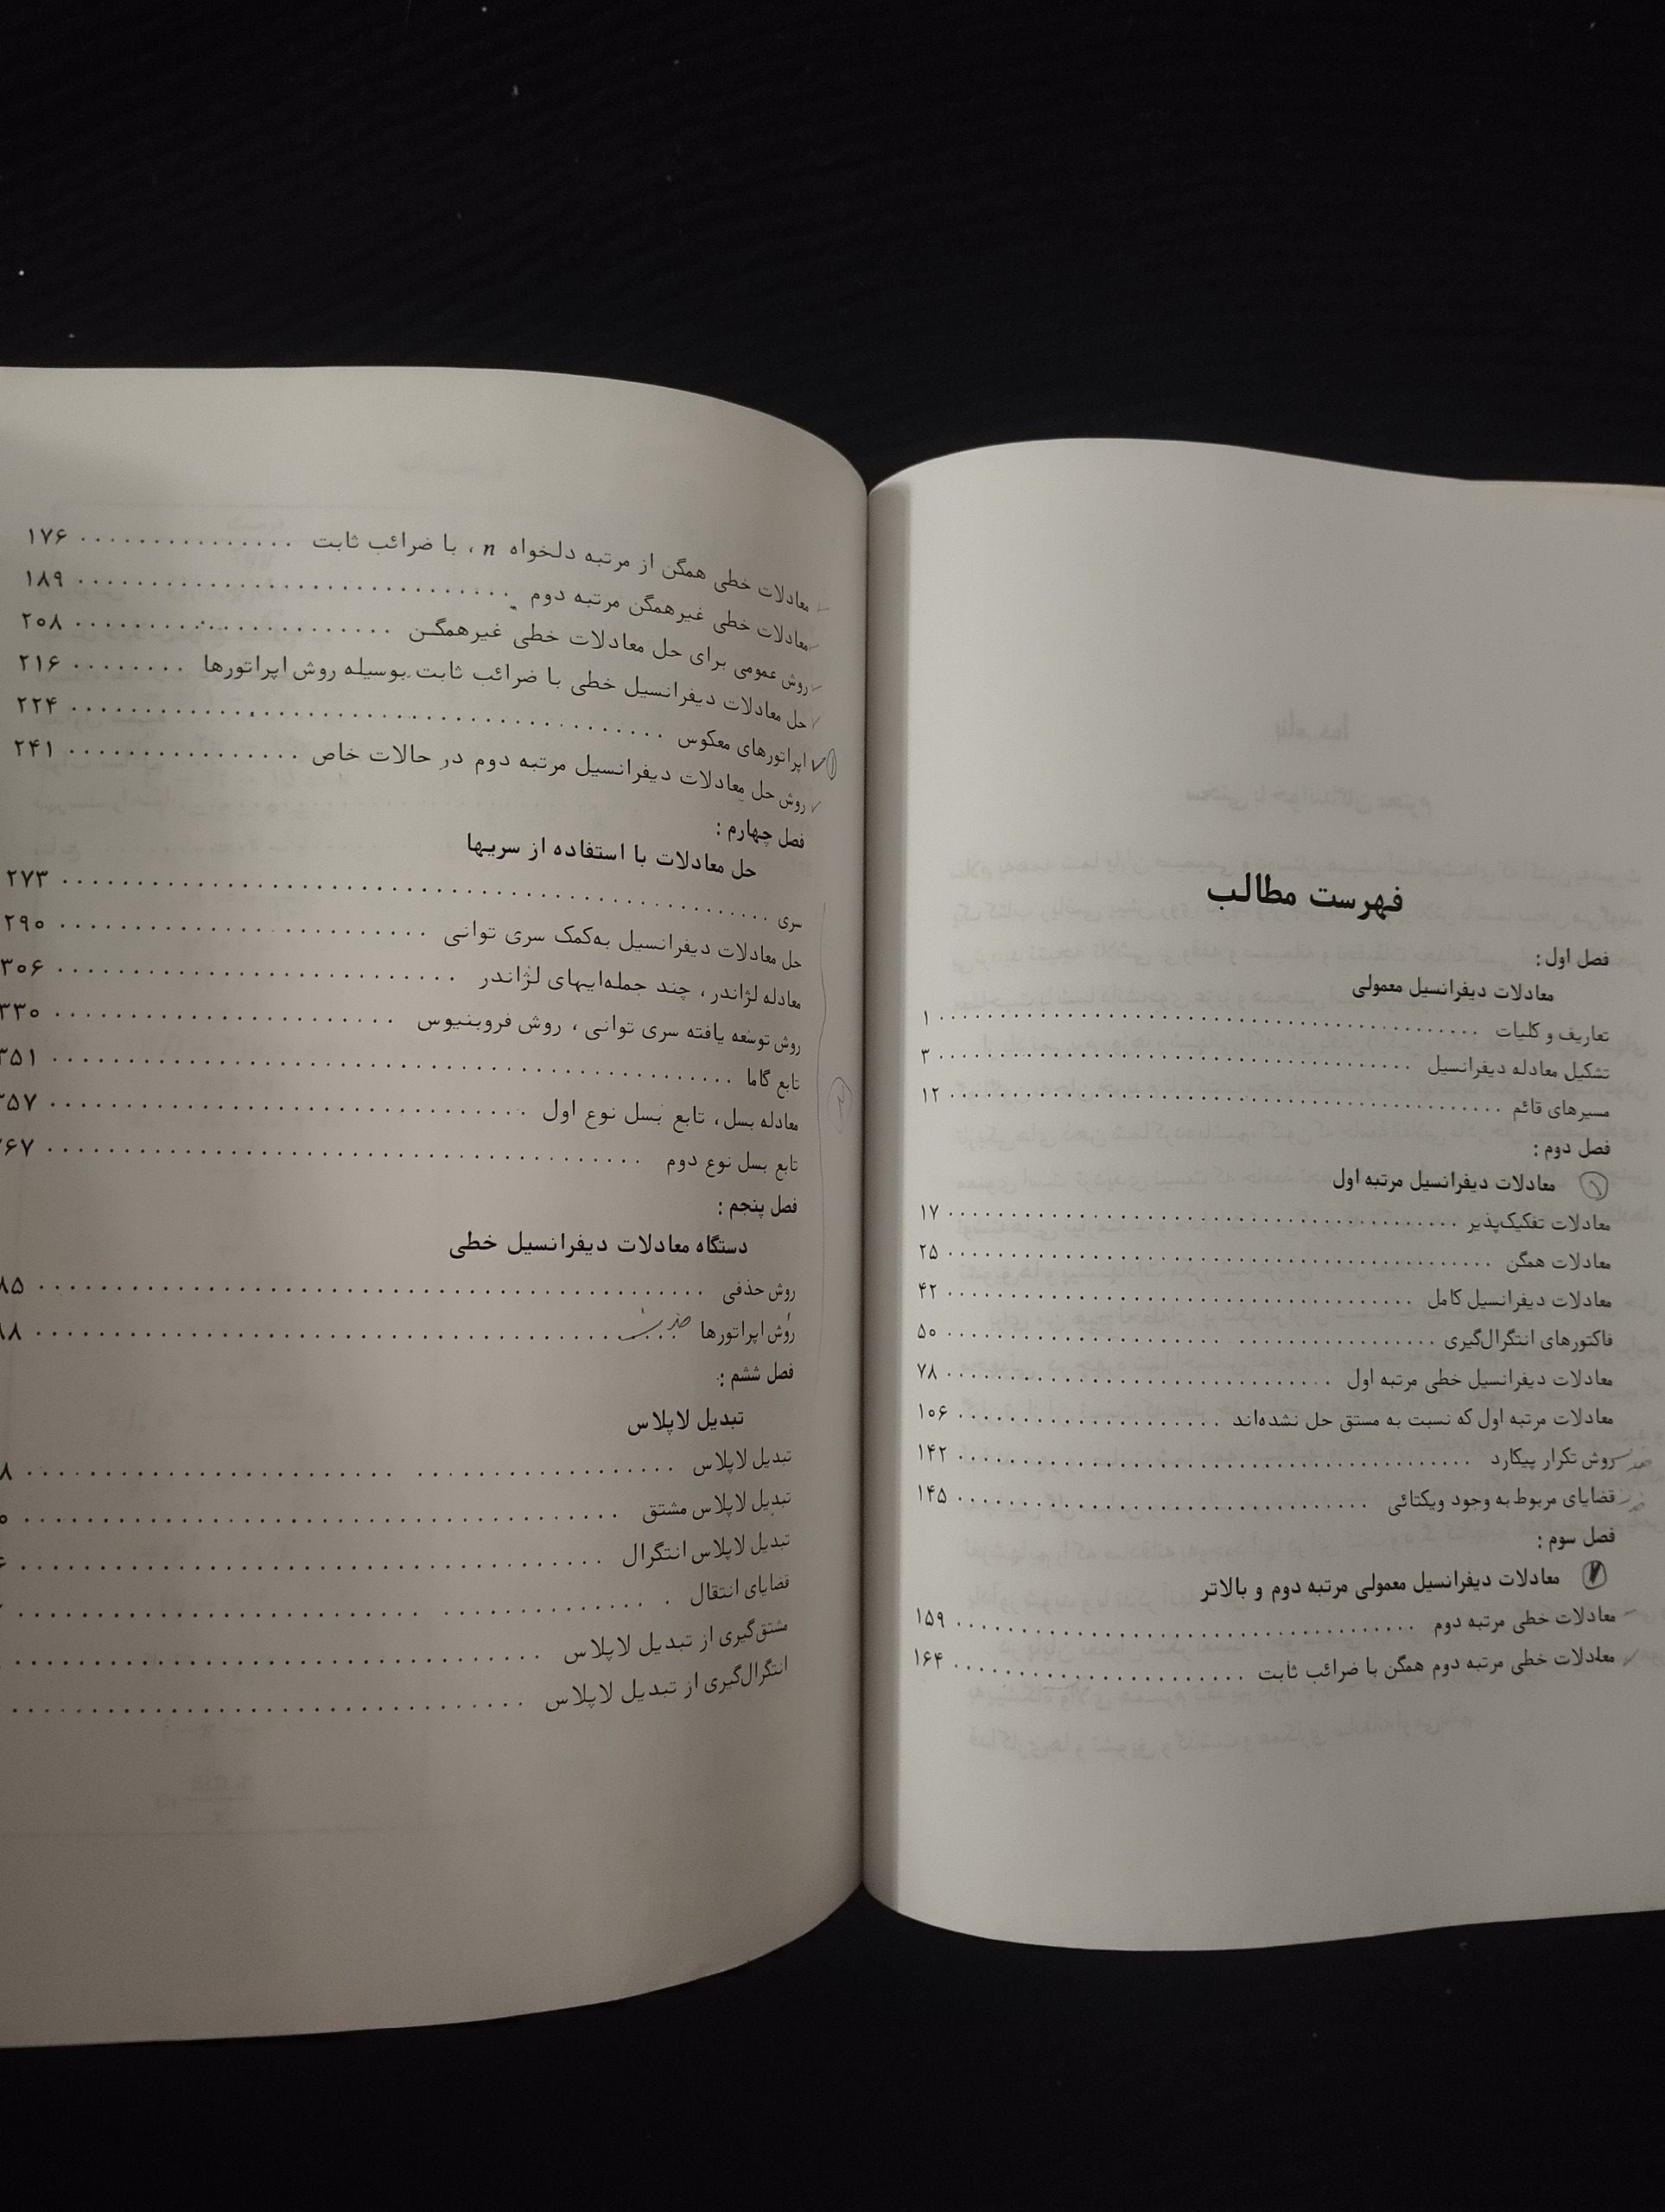 فهرست مطالب
فصل اول :
معادلات دیفرانسیل معمولی
تعاریف و کلیات ۱
تشکیل معادله دیفرانسیل ۳
مسیرهای قائم ۱۲
فصل دوم :
معادلات دیفرانسیل مرتبه اول
معادلات تفکیک‌پذیر ۱۷
معادلات همگن ۲۵
معادلات دیفرانسیل کامل ۴۲
فاکتورهای انتگرال‌گیری ۵۰
معادلات دیفرانسیل خطی مرتبه اول ۷۸
معادلات مرتبه اول که نسبت به مستق حل نشده‌اند ۱۰۶
روش تکرار پیکارد ۱۴۲
قضایای مربوط به وجود ویکتائی ۱۴۵
فصل سوم :
معادلات دیفرانسیل معمولی مرتبه دوم و بالاتر
معادلات خطی مرتبه دوم ۱۵۹
معادلات خطی مرتبه دوم همگن با ضرائب ثابت ۱۶۴
معادلات خطی همگن از مرتبه دلخواه n ، با ضرائب ثابت ۱۷۶
معادلات خطی غیرهمگن مرتبه دوم ۱۸۹
روش عمومی برای حل معادلات خطی غیرهمگن ۲۰۸
حل معادلات دیفرانسیل خطی با ضرائب ثابت بوسیله روش اپراتورها ۲۱۶
اپراتورهای معکوس ۲۲۴
روش حل معادلات دیفرانسیل مرتبه دوم در حالات خاص ۲۴۱
فصل چهارم :
حل معادلات با استفاده از سریها
سری ۲۷۳
حل معادلات دیفرانسیل به‌کمک سری توانی ۲۹۰
معادله لژاندر ، چند جمله‌ایهای لژاندر ۳۰۶
روش توسعه یافته سری توانی ، روش فروبنیوس ۳۳۰
تابع گاما ۳۵۱
معادله بسل ، تابع بسل نوع اول ۳۵۷
تابع بسل نوع دوم
فصل پنجم :
دستگاه معادلات دیفرانسیل خطی
روش حذفی
روش اپراتورها
فصل ششم :
تبدیل لاپلاس
تبدیل لاپلاس
تبدیل لاپلاس مشتق
تبدیل لاپلاس انتگرال
قضایای انتقال
مشتق‌گیری از تبدیل لاپلاس
انتگرال‌گیری از تبدیل لاپلاس